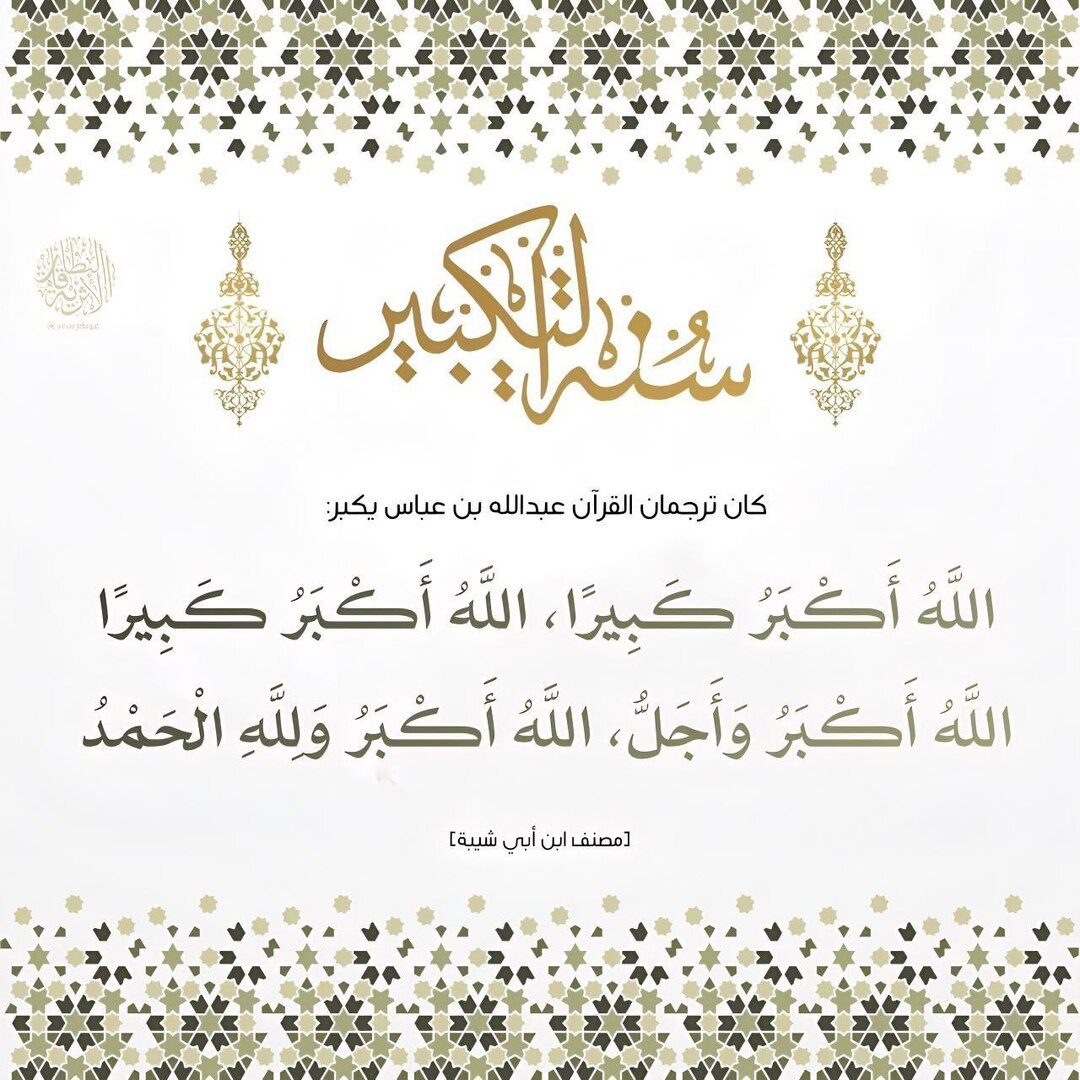 سُنَّة التكبير
كان ترجمان القرآن عبدالله بن عباس يكبر:
اللَّهُ أَكْبَرُ كَبِيرًا، اللَّهُ أَكْبَرُ كَبِيرًا
اللَّهُ أَكْبَرُ وَأَجَلُّ، اللَّهُ أَكْبَرُ وَلِلَّهِ الْحَمْدُ
[مصنف ابن أبي شيبة]